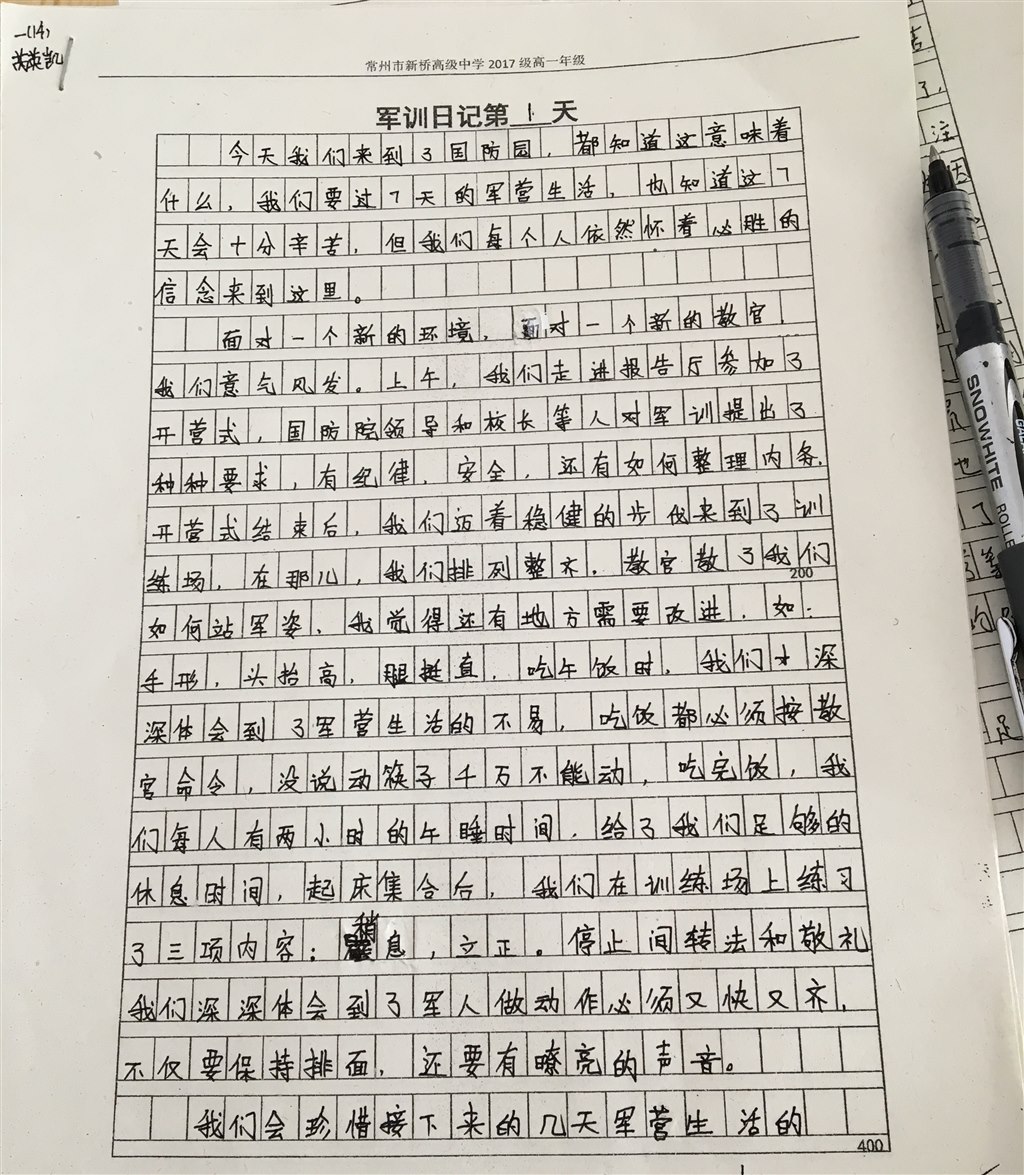 一(14)
英凯
常州市新桥高级中学2017级高一年级
军训日记第1天
今天我们来到了国防园,都知道这意味着
什么,我们要过7天的军营生活,也知道这7
天会十分辛苦,但我们每个人依然怀着必胜的
信念来到这里。
面对一个新的环境,面对一个新的教官,
我们意气风发。上午,我们走进报告厅参加了
开营式,国防院领导和校长等人对军训提出了
种种要求,有纪律、安全,还有如何整理内务.
开营式结束后,我们迈着稳健的步伐来到了训
练场,在那儿,我们排列整齐,教官教了我们
200
如何站军姿、我觉得还有地方需要改进,如:
手形,头抬高,腿挺直,吃午饭时,我们才深
深体会到了军营生活的不易,吃饭都必须按教
官命令,没说动筷子千万不能动,吃完饭,我
们每人有两小时的午睡时间,给了我们足够的
休息时间,起床集合后,我们在训练场上练习
了三项内容:稍息,立正。停止间转法和敬礼
我们深深体会到了军人做动作必须又快又齐,
不仅要保持排面,还要有嘹亮的声音。
我们会珍惜接下来的几天军营生活的
400
SNOWHITE